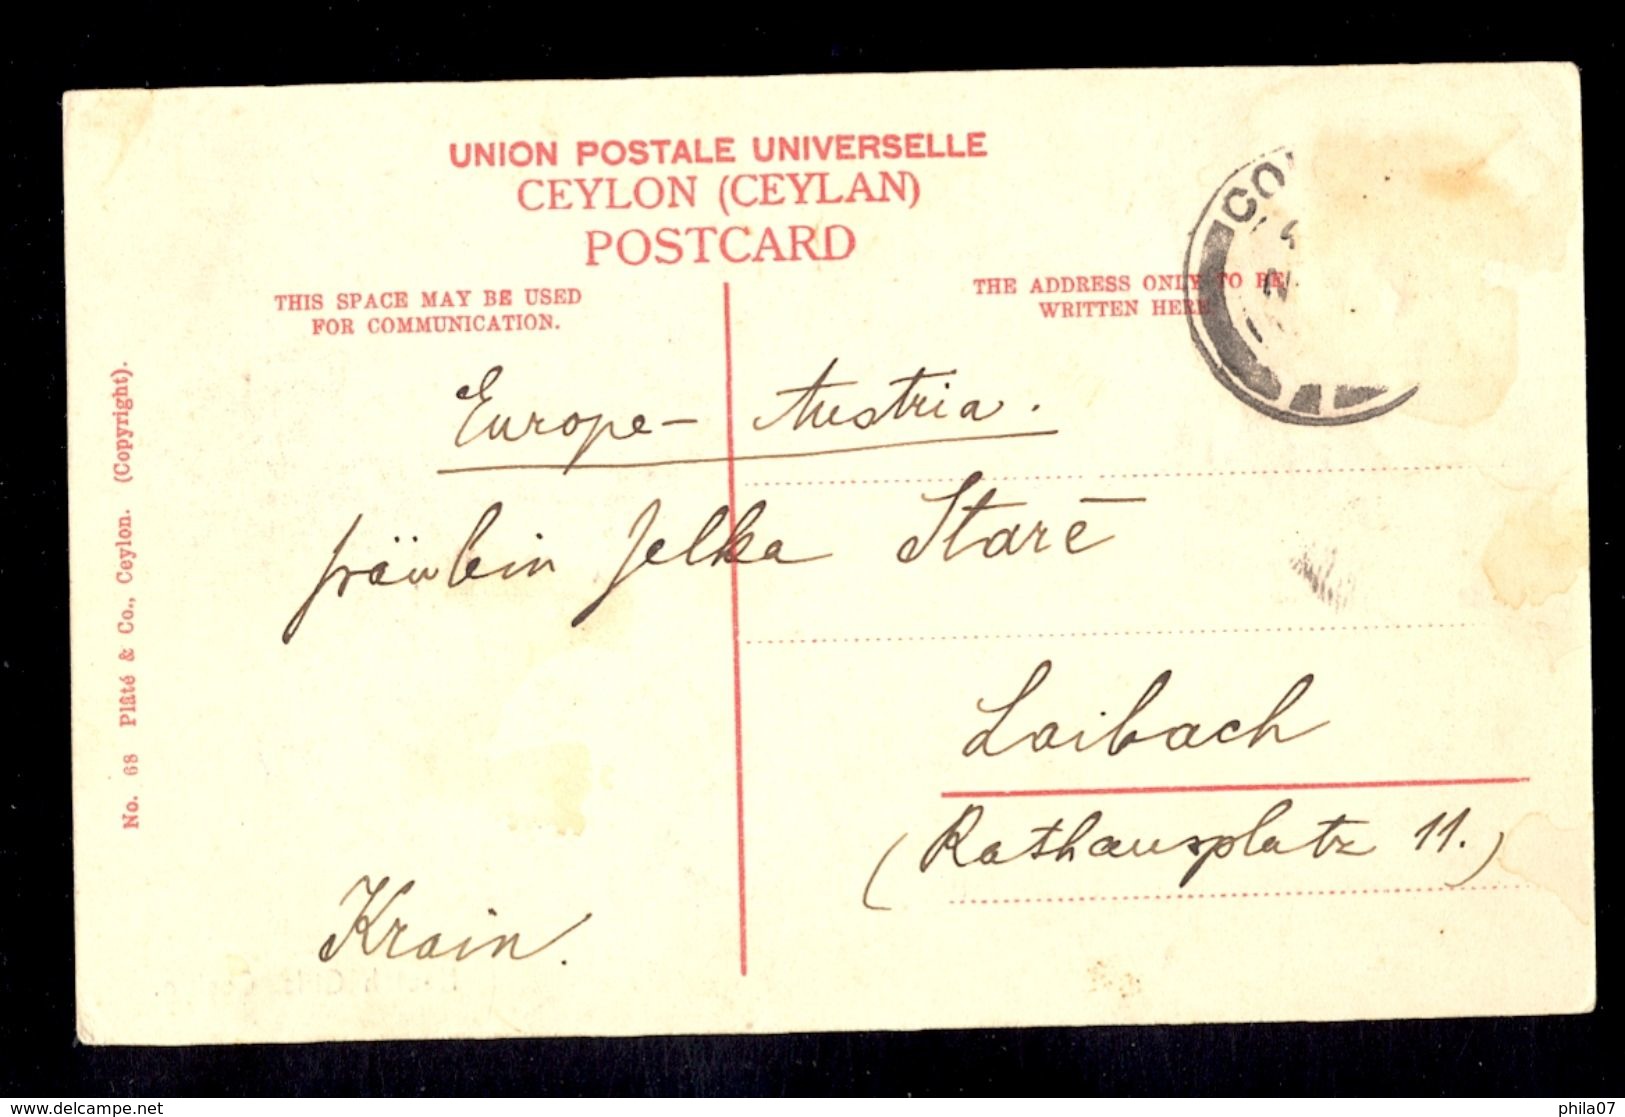 UNION POSTALE UNIVERSELLE
CEYLON (CEYLAN)
POSTCARD
THIS SPACE MAY BE USED
FOR COMMUNICATION.
THE ADDRESS ONLY TO BE
WRITTEN HERE
Europe - Austria.
fräulein Jelka Starē
Laibach
(Rathausplatz 11.)
Krain.
No. 68 Plâté & Co., Ceylon. (Copyright).
delcampe.net
phila07